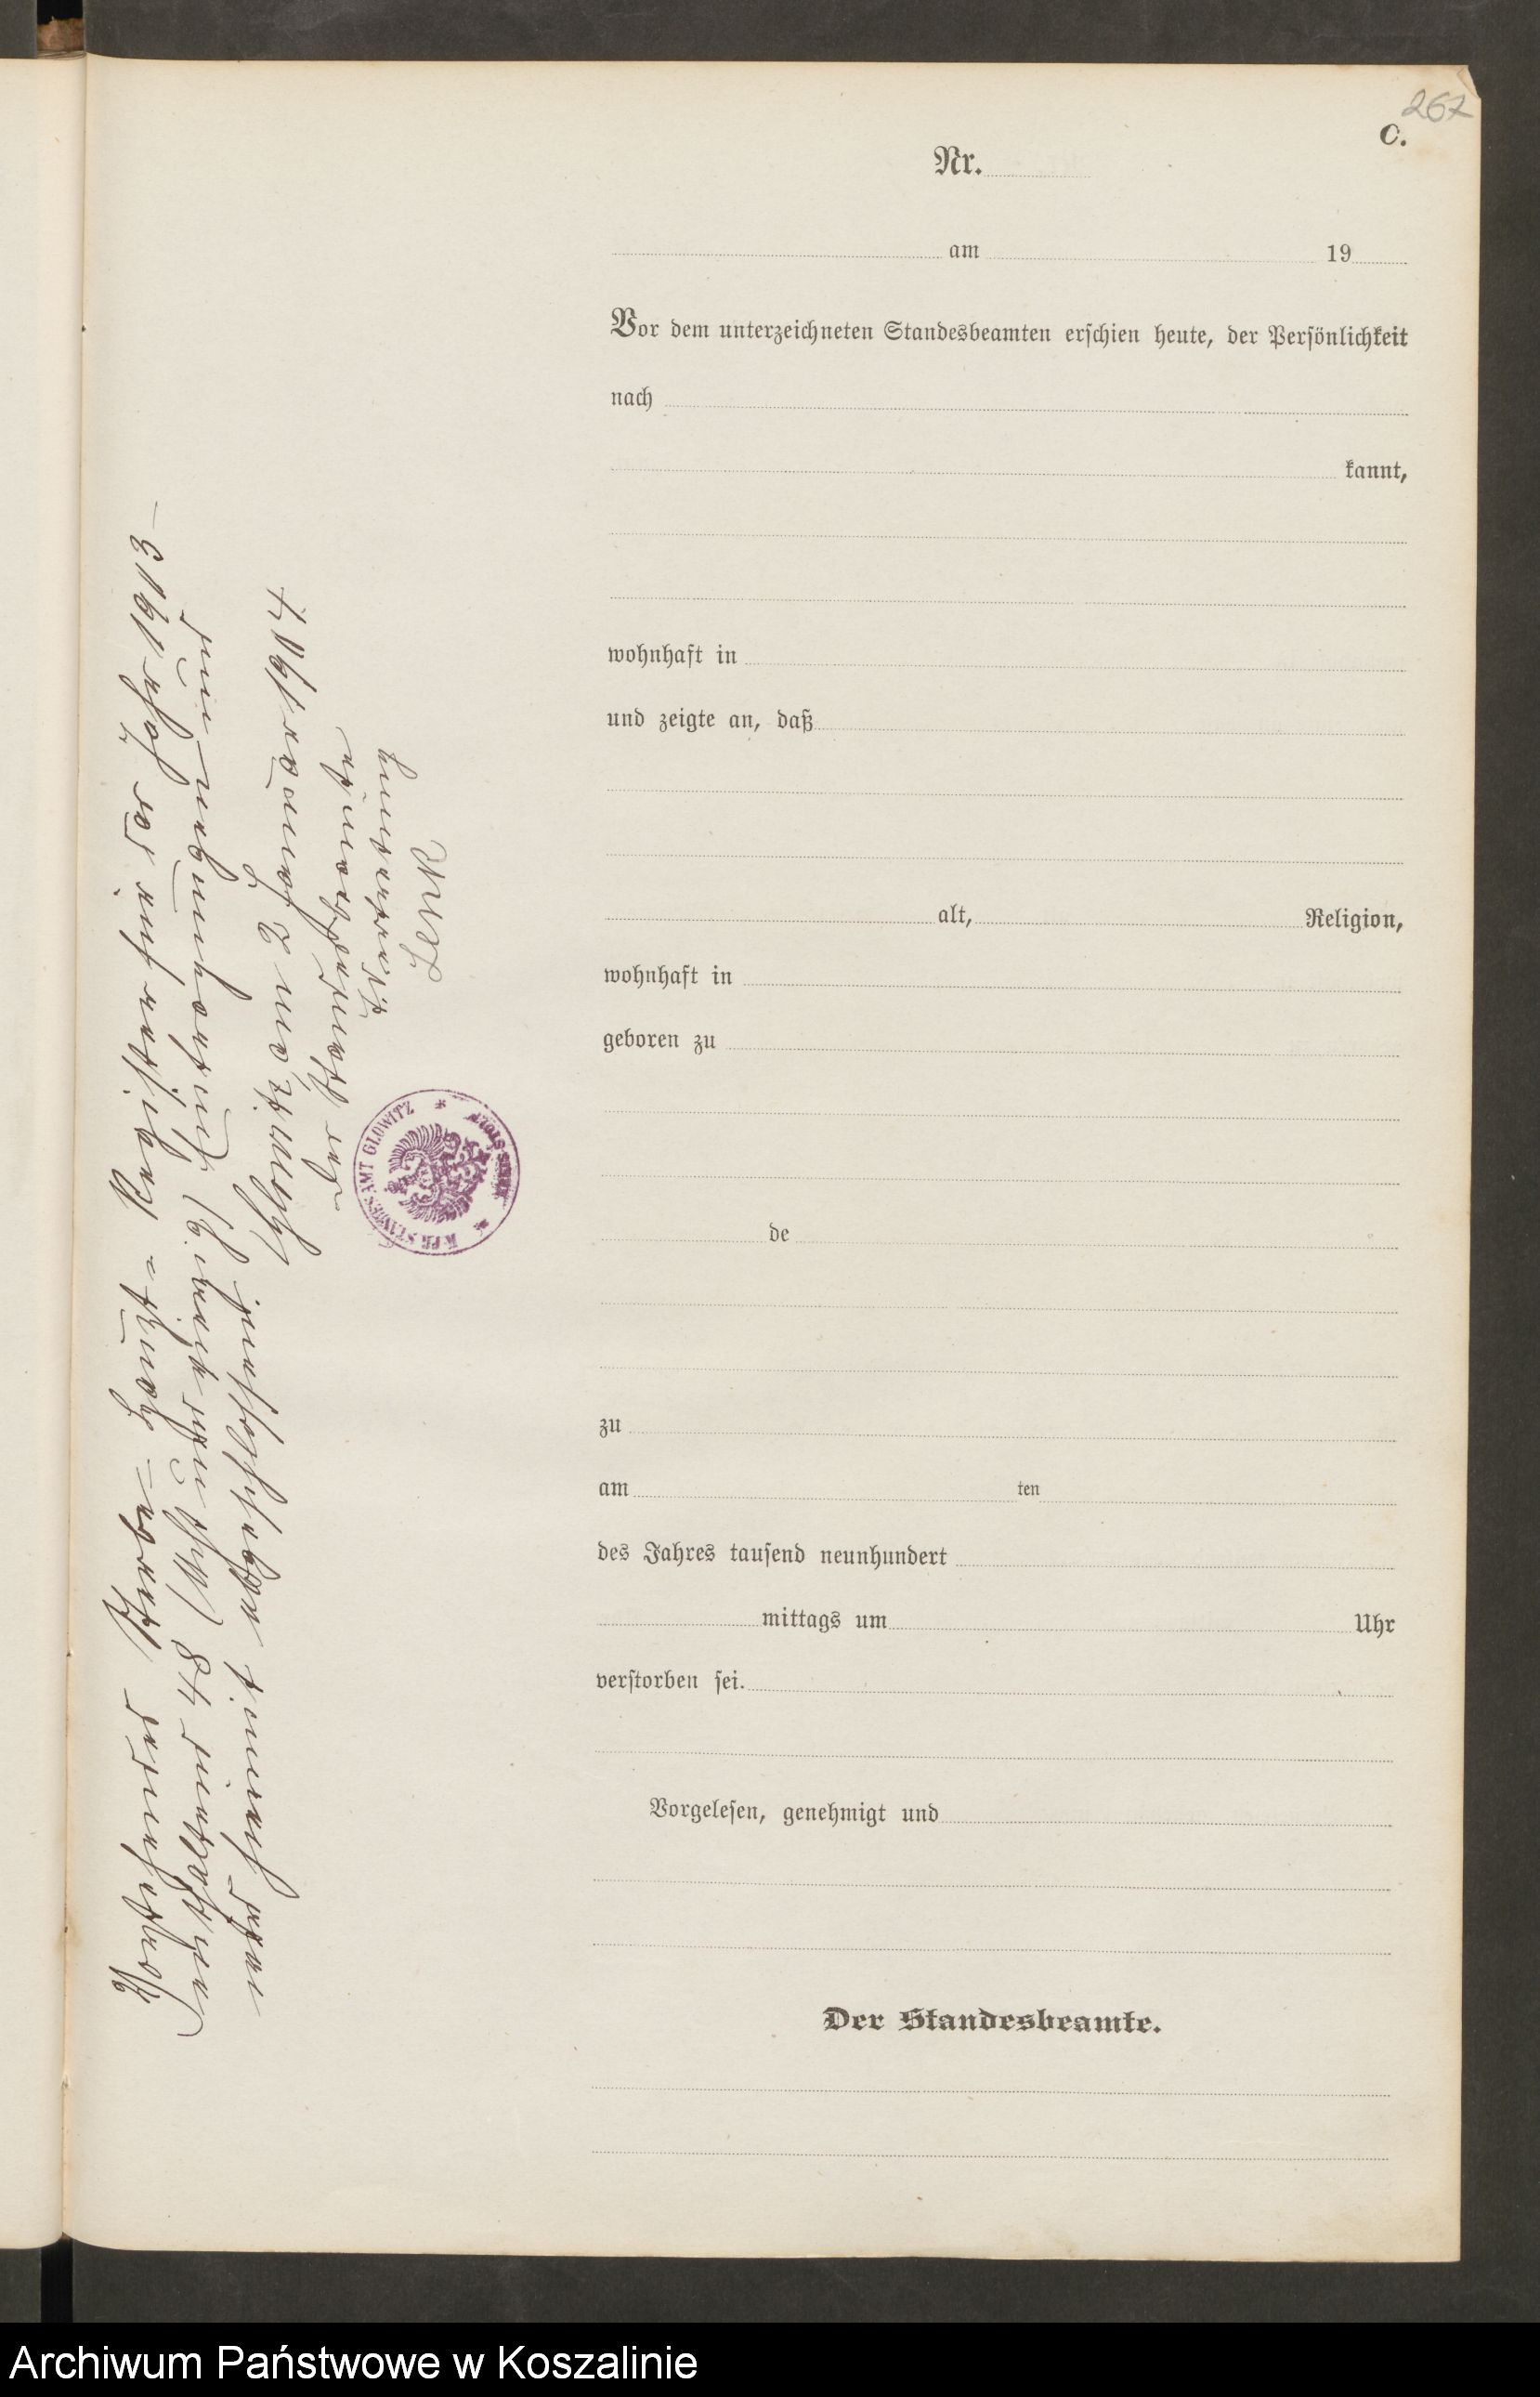 267
C.
Nr.
am 19
Vor dem unterzeichneten Standesbeamten erschien heute, der Persönlichkeit
nach
kannt,
wohnhaft in
und zeigte an, daß
alt, Religion,
wohnhaft in
geboren zu
de
zu
am ten
des Jahres tausend neunhundert
mittags um Uhr
verstorben sei.
Vorgelesen, genehmigt und
Der Standesbeamte.
Vorstehendes Sterbe-Haupt-Register für das Jahr 1903
48 Eintragungen und
wird hiermit abgeschlossen.
Glowitz, am 2 Januar 1904
Der Standesbeamte
In Vertretung
K. PR. STANDESAMT GLOWITZ * KREIS STOLP *
Archiwum Państwowe w Koszalinie